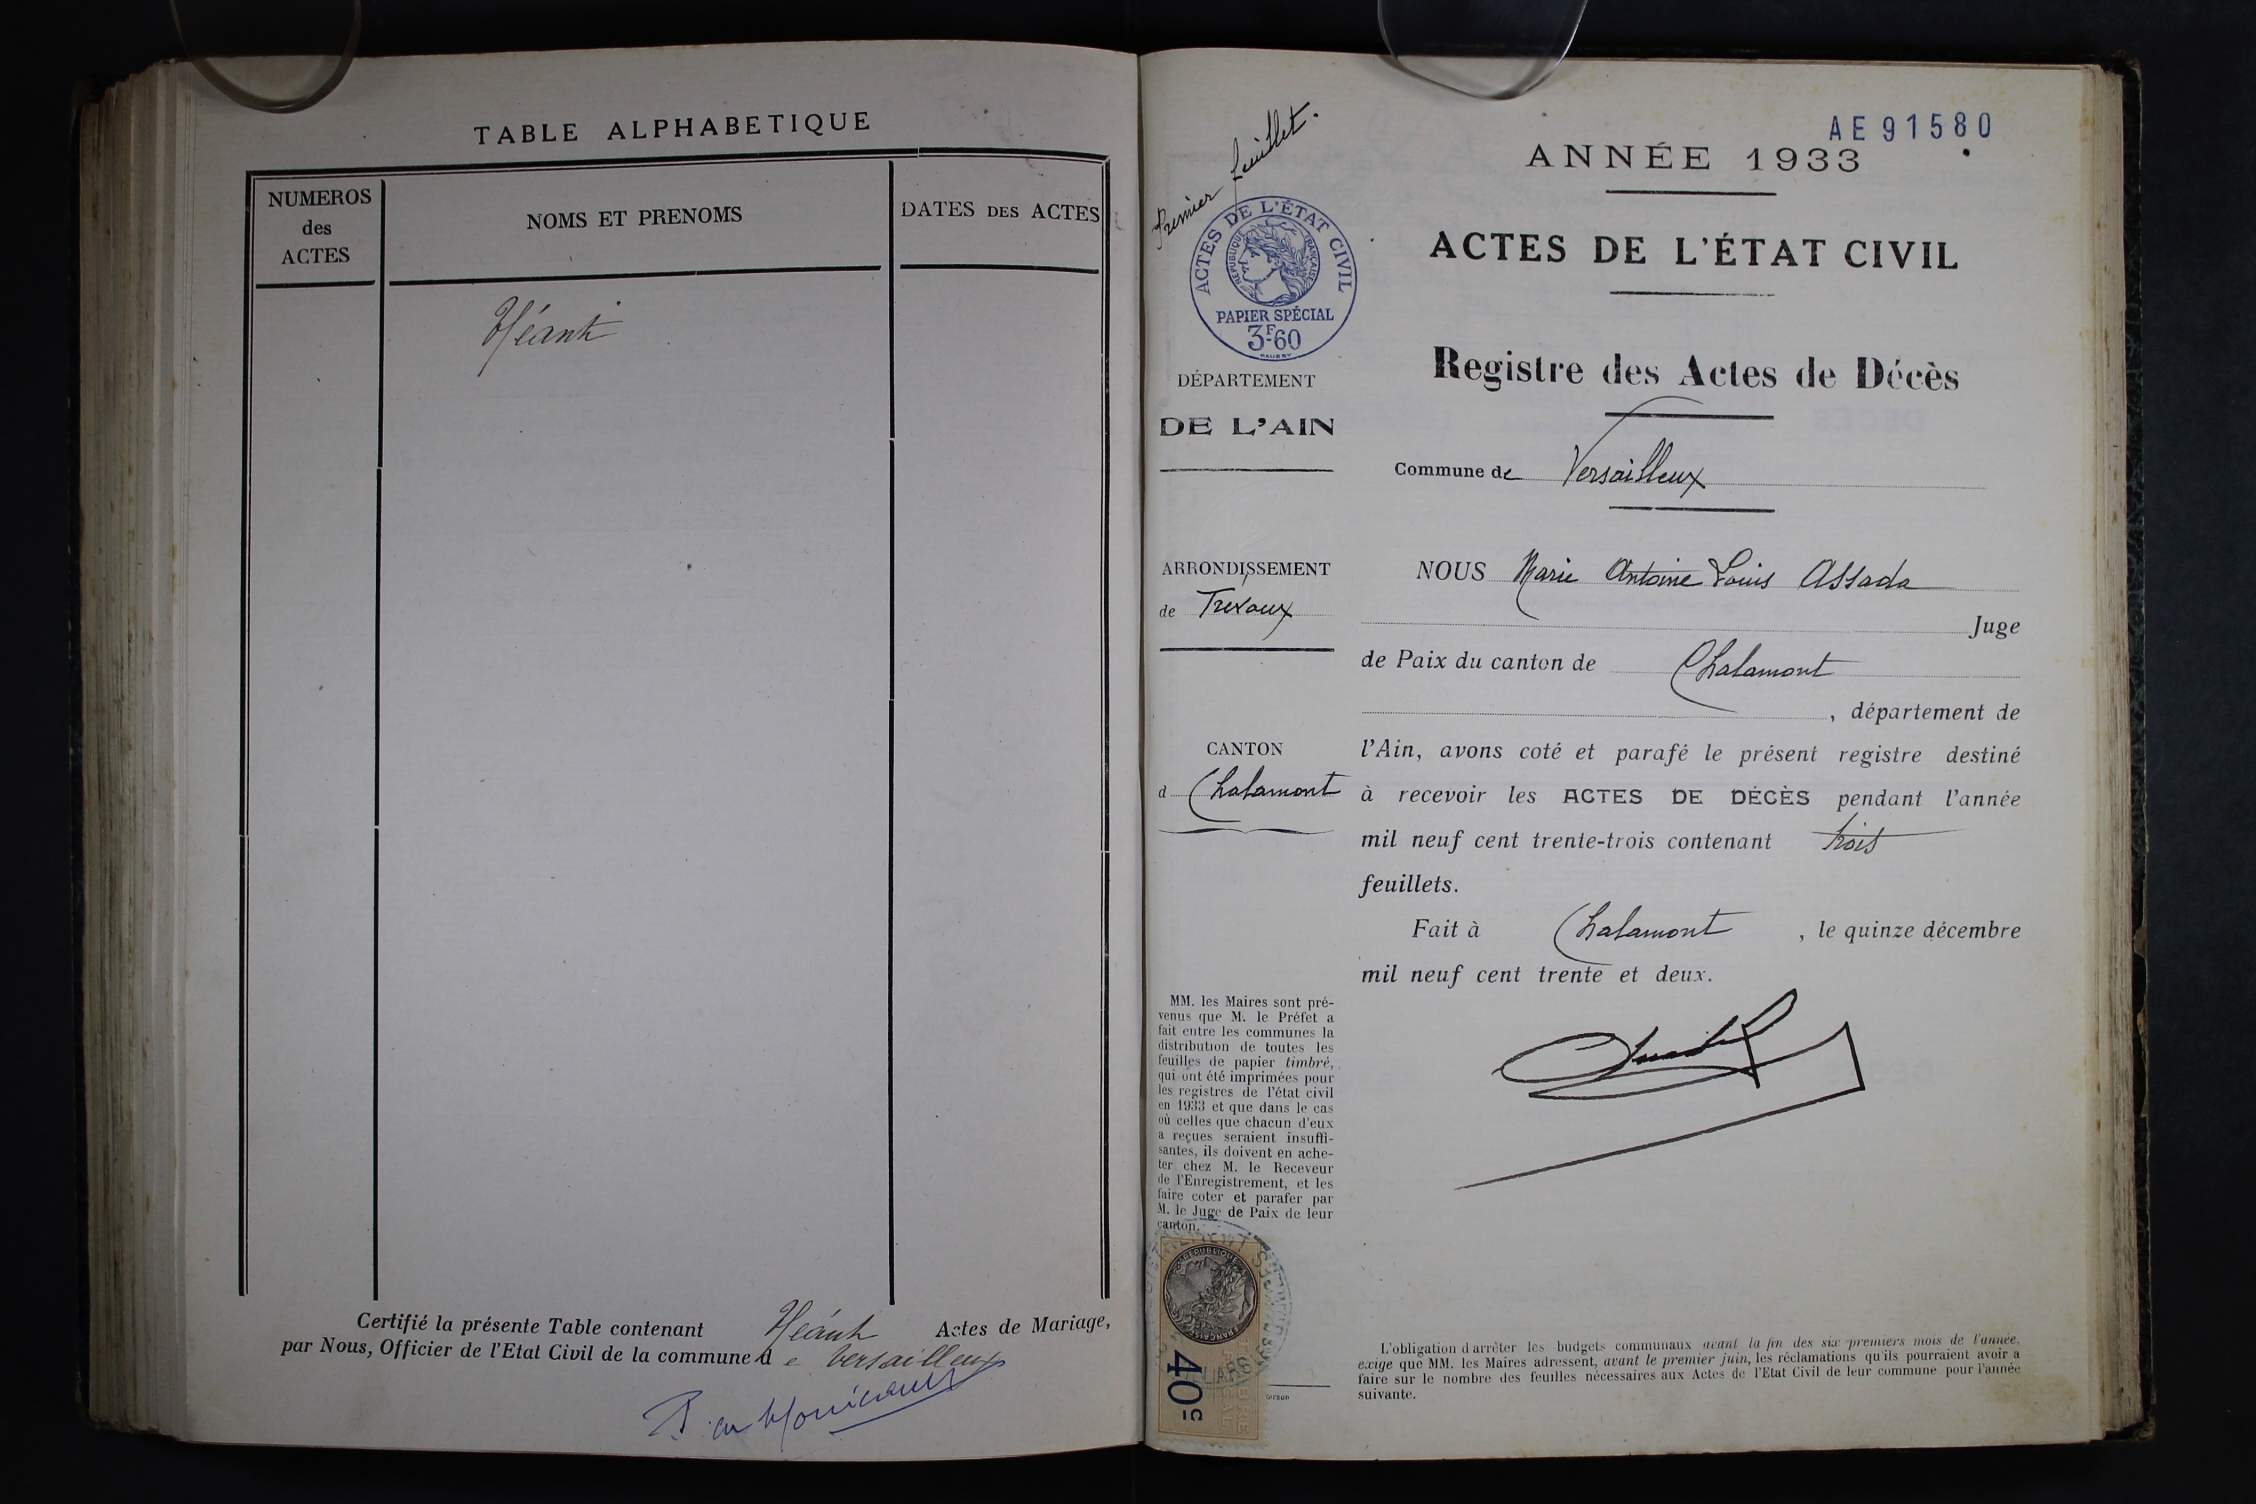 TABLE ALPHABETIQUE
NUMEROS
des
ACTES
NOMS ET PRENOMS
DATES DES ACTES
Néant
Certifié la présente Table contenant Néant Actes de Mariage,
par Nous, Officier de l'Etat Civil de la commune de Versailleux
Premier feuillet.
ACTES DE L'ÉTAT CIVIL
RÉPUBLIQUE FRANÇAISE
PAPIER SPÉCIAL
3F.60
DÉPARTEMENT
DE L'AIN
ARRONDISSEMENT
de Trévoux
CANTON
d Chalamont
MM. les Maires sont pré-
venus que M. le Préfet a
fait entre les communes la
distribution de toutes les
feuilles de papier timbré,
qui ont été imprimées pour
les registres de l'état civil
en 1933 et que dans le cas
où celles que chacun d'eux
a reçues seraient insuffi-
santes, ils doivent en ache-
ter chez M. le Receveur
de l'Enregistrement, et les
faire coter et parafer par
M. le Juge de Paix de leur
canton.
40
5
AE 91580
ANNÉE 1933
ACTES DE L'ÉTAT CIVIL
Registre des Actes de Décès
Commune de Versailleux
NOUS Marie Antoine Louis Assada
Juge
de Paix du canton de Chalamont
, département de
l'Ain, avons coté et parafé le présent registre destiné
à recevoir les ACTES DE DÉCÈS pendant l'année
mil neuf cent trente-trois contenant trois
feuillets.
Fait à Chalamont, le quinze décembre
mil neuf cent trente et deux.
L'obligation d'arrêter les budgets communaux avant la fin des six premiers mois de l'année,
exige que MM. les Maires adressent, avant le premier juin, les réclamations qu'ils pourraient avoir a
faire sur le nombre des feuilles nécessaires aux Actes de l'Etat Civil de leur commune pour l'année
suivante.